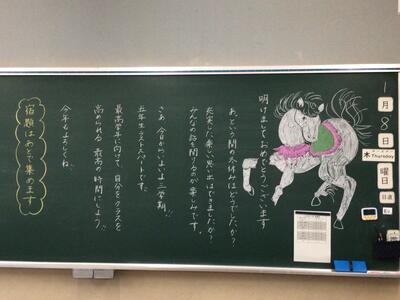 明けましておめでとうございます
あっという間の冬休みはどうでしたか?
充実した楽しい思い出はできましたか?
みんなの話を聞けるのが楽しみです。
さあ、今日からいよいよ三学期。
五年生ラストスパートです。
最高学年に向けて、自分とクラスを
高められる、最高の時間にしよう。
今年もよろしくね。
宿題はあとで集めます
1
月
8
日
木 Thursday
曜日
日直